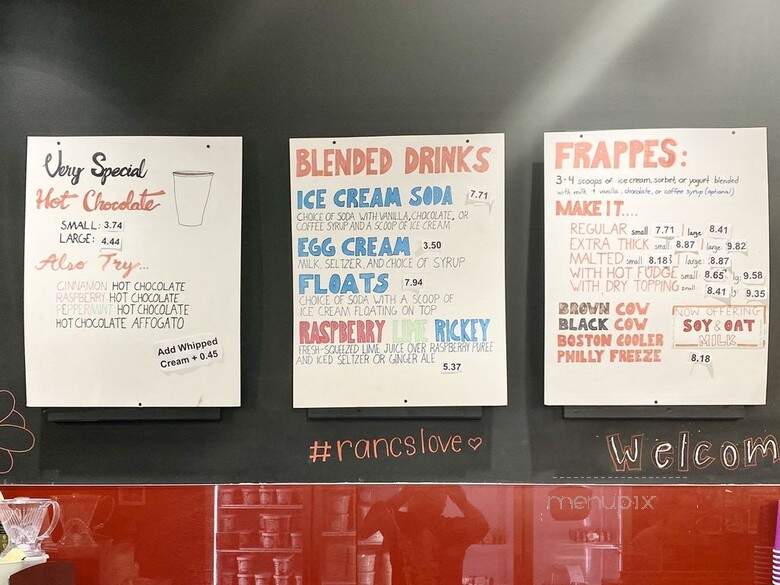 Very Special
Hot Chocolate
SMALL: 3.74
LARGE: 4.44
Also Try...
CINNAMON HOT CHOCOLATE
RASPBERRY HOT CHOCOLATE
PEPPERMINT HOT CHOCOLATE
HOT CHOCOLATE AFFOGATO
Add Whipped
Cream + 0.45
BLENDED DRINKS
ICE CREAM SODA 7.71
CHOICE OF SODA WITH VANILLA, CHOCOLATE, OR
COFFEE SYRUP AND A SCOOP OF ICE CREAM
EGG CREAM 3.50
MILK, SELTZER, AND CHOICE OF SYRUP
FLOATS 7.94
CHOICE OF SODA WITH A SCOOP OF
ICE CREAM FLOATING ON TOP
RASPBERRY LIME RICKEY
FRESH-SQUEEZED LIME JUICE OVER RASPBERRY PUREE
AND ICED SELTZER OR GINGER ALE 5.37
FRAPPES:
3-4 scoops of ice cream, sorbet, or yogurt blended
with milk + vanilla, chocolate, or coffee syrup (optional)
MAKE IT....
REGULAR small 7.71 large 8.41
EXTRA THICK small 8.87 large 9.82
MALTED small 8.18 large: 8.87
WITH HOT FUDGE small 8.65 lg: 9.58
WITH DRY TOPPING small 8.41 lg 9.35
BROWN COW
BLACK COW
BOSTON COOLER
PHILLY FREEZE 8.18
NOW OFFERING
SOY & OAT
MILK
#rancslove
Welcom
menupix